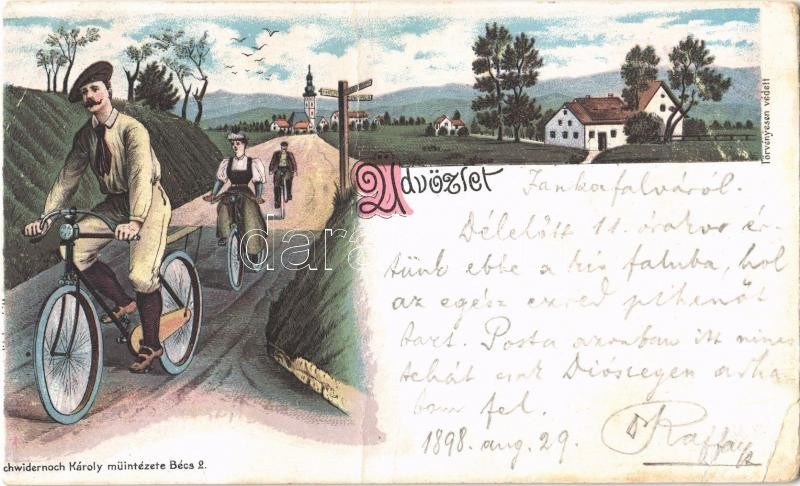 Üdvözlet Jankafalváról.
Délelőtt 11 órakor ér-
tünk ebbe a kis faluba, hol
az egész ezred pihenőt
tart. Posta azonban itt nincs
tehát csak Diószegen adha-
tom fel.
1898. aug. 29.
Törvényesen védett
chwidernoch Károly müintézete Bécs 2.
darab